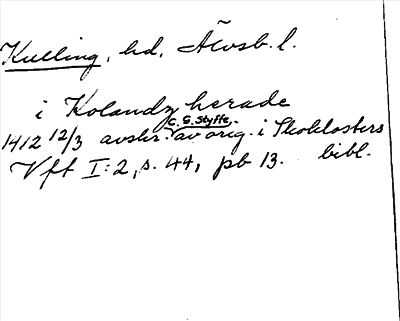 Kulling, hd, Älvsb. l.
i Kolandz herade
C. G. Styffe,
1412 12/3 avskr. av orig. i Skoklosters
Vft I:2, s. 44, pb 13. bibl.